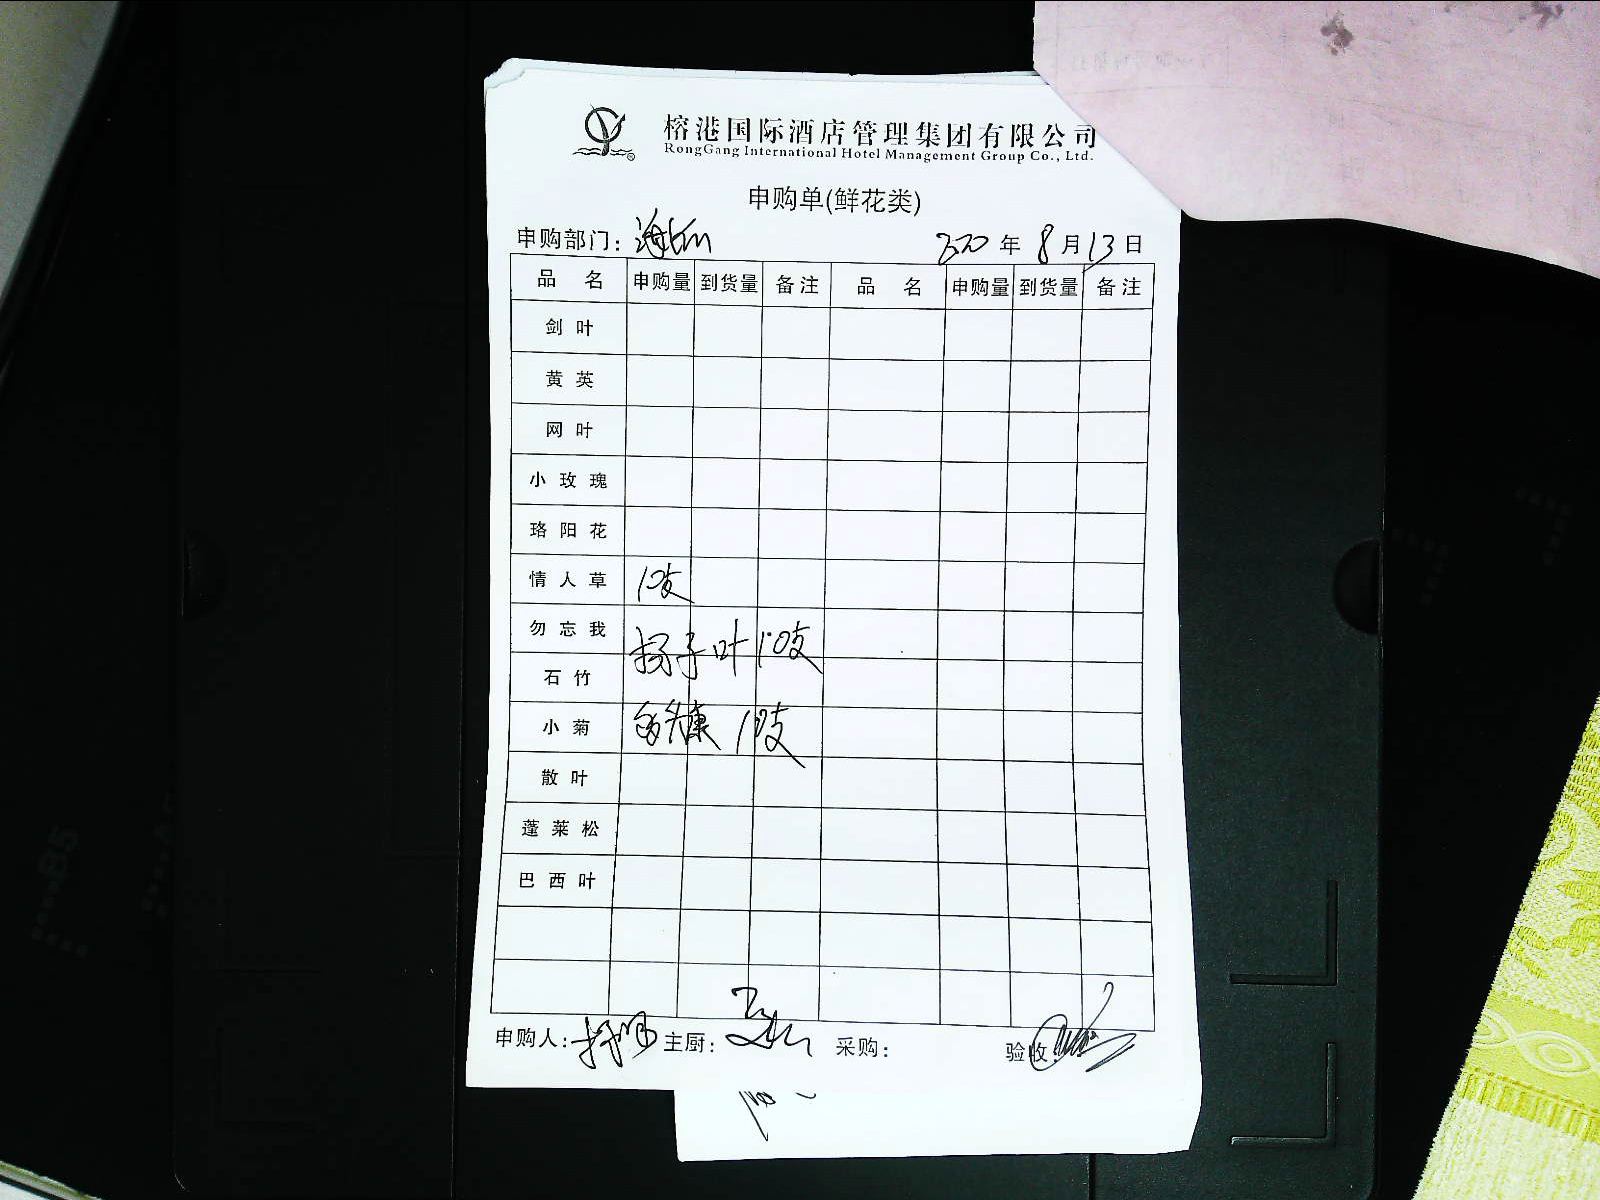 榕港国际酒店管理集团有限公司
RongGang International Hotel Management Group Co., Ltd.
申购单(鲜花类)
申购部门: 2020 年 8 月 13 日
品 名 申购量 到货量 备注 品 名 申购量 到货量 备注
剑叶
黄英
网叶
小玫瑰
珞阳花
情人草 10支
勿忘我
扬子叶 10支
石竹
小菊 10支
散叶
蓬莱松
巴西叶
申购人: 主厨: 采购: 验收: